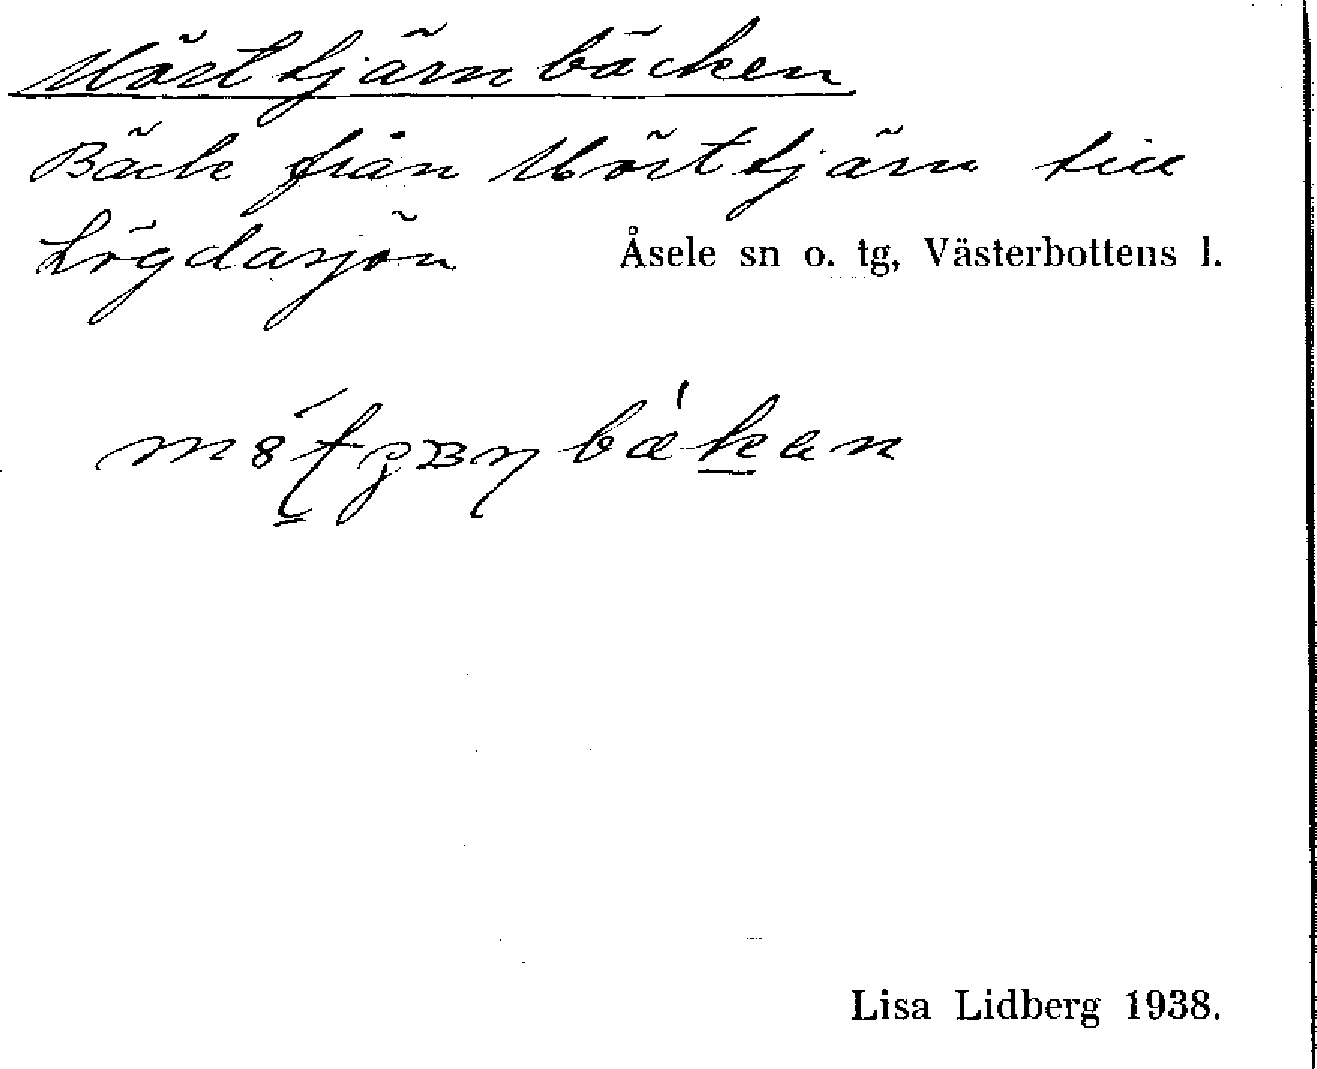 Mörttjärnbäcken
Bäck från Mörttjärn till
Lögdasjön Åsele sn o. tg, Västerbottens l.
Lisa Lidberg 1938.